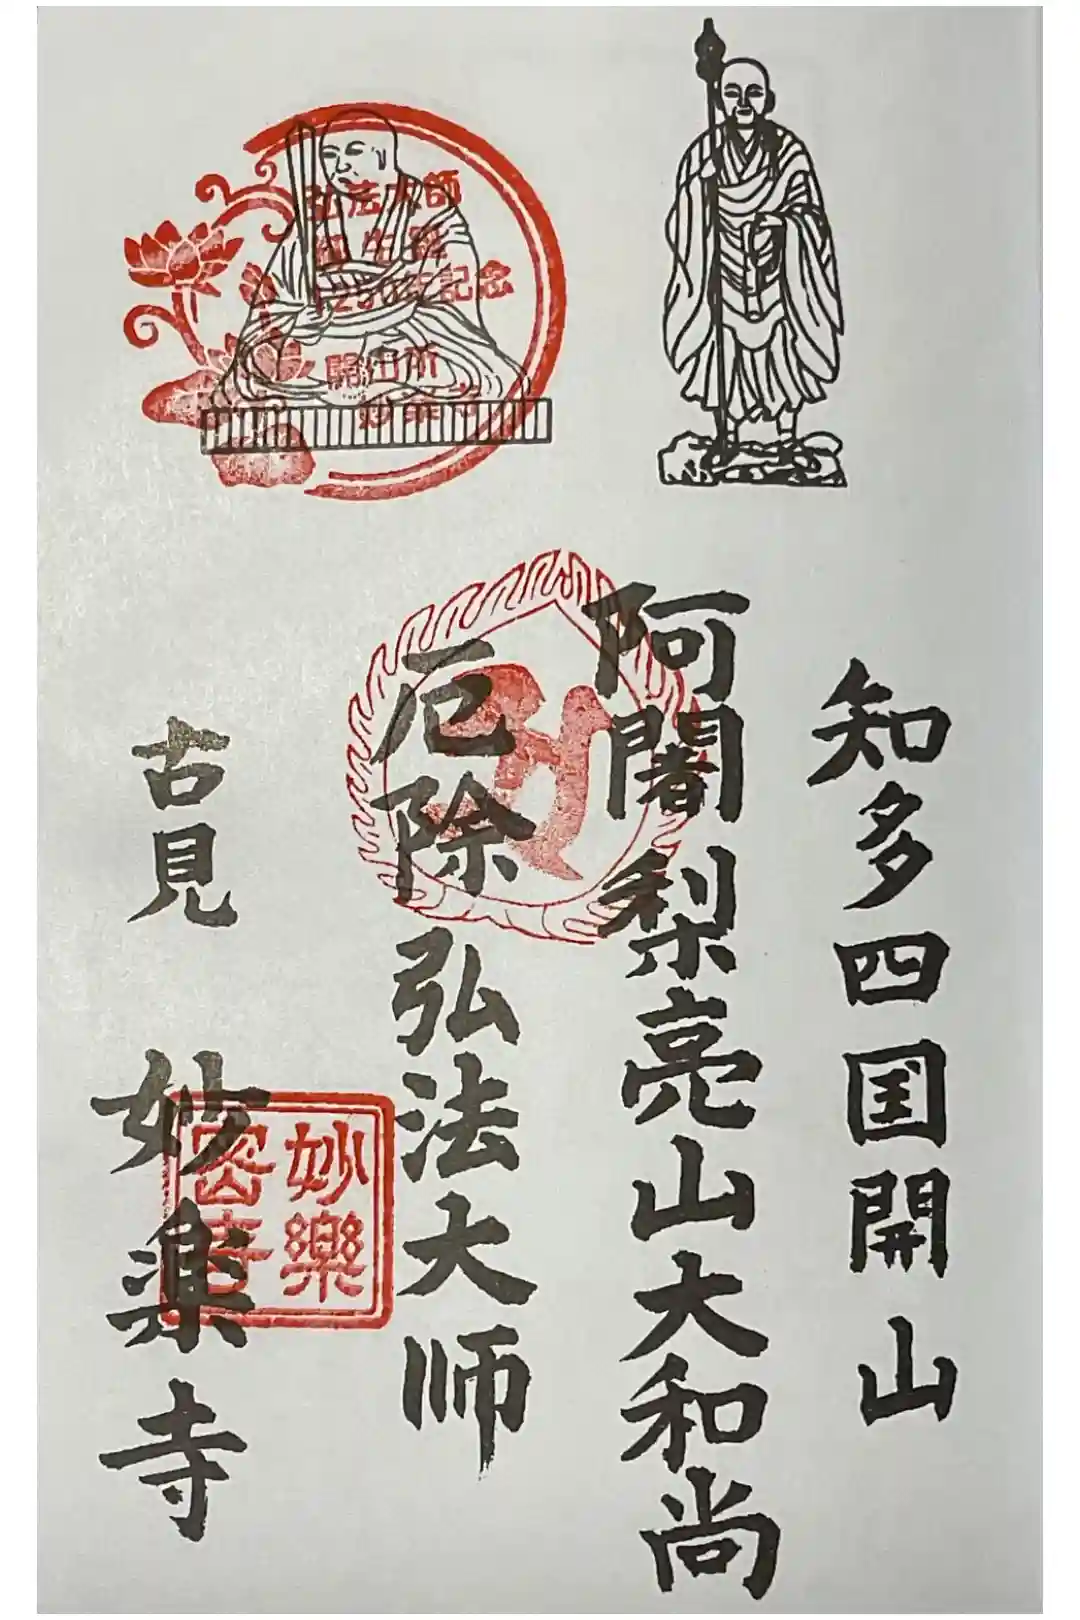 知多四国開山
阿闍梨亮山大和尚
厄除弘法大师
古見 妙楽寺
弘法大師
御生誕
1250年記念
開山所
妙楽寺
妙樂
密寺